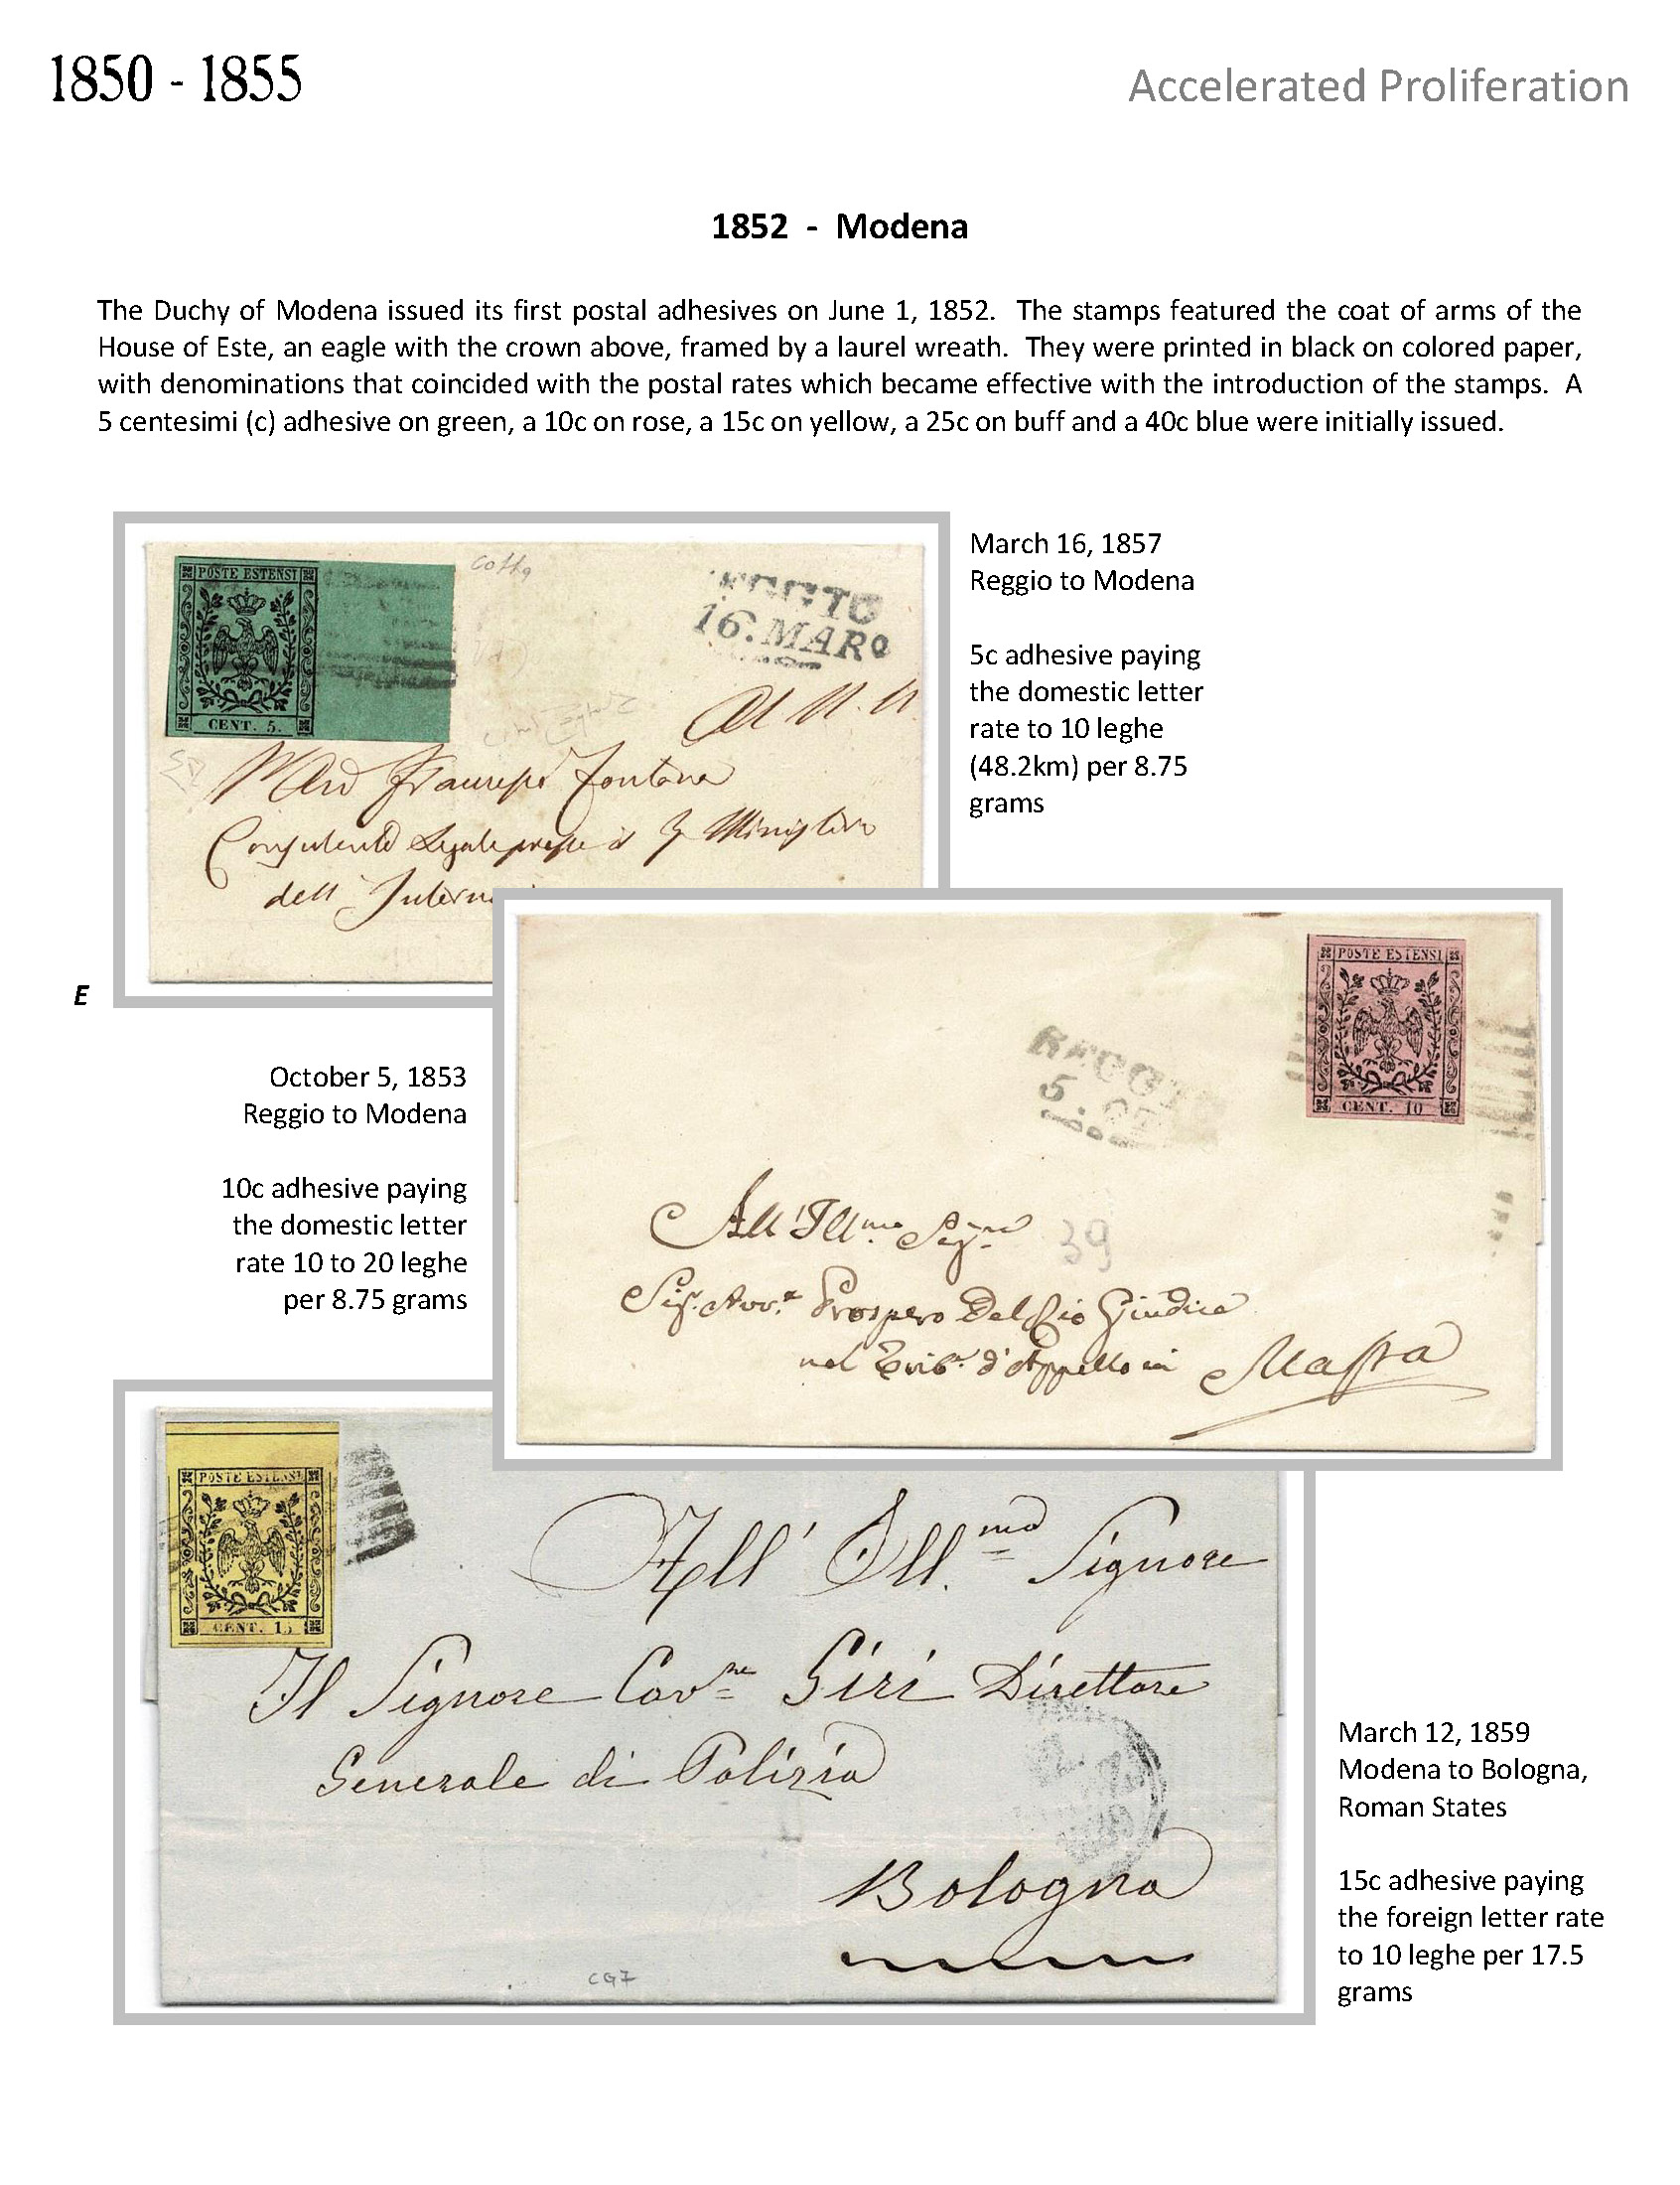 1850 - 1855
Accelerated Proliferation
1852 - Modena
The Duchy of Modena issued its first postal adhesives on June 1, 1852. The stamps featured the coat of arms of the
House of Este, an eagle with the crown above, framed by a laurel wreath. They were printed in black on colored paper,
with denominations that coincided with the postal rates which became effective with the introduction of the stamps. A
5 centesimi (c) adhesive on green, a 10c on rose, a 15c on yellow, a 25c on buff and a 40c blue were initially issued.
POSTE ESTENSI
CENT. 5.
16. MARO
Fontana
dell'
March 16, 1857
Reggio to Modena
5c adhesive paying
the domestic letter
rate to 10 leghe
(48.2km) per 8.75
grams
E
POSTE ESTENSI
CENT. 10
REGGIO
5.
39
All'Illmo Sigre
Prospero Del Rio Giudice
nel Tribe d'Appello in Massa
October 5, 1853
Reggio to Modena
10c adhesive paying
the domestic letter
rate 10 to 20 leghe
per 8.75 grams
POSTE ESTENSI
CENT. 15
All' Ill.mo Signore
Il Signore Cavre Siri Direttore
Generale di Polizia
Bologna
CG7
March 12, 1859
Modena to Bologna,
Roman States
15c adhesive paying
the foreign letter rate
to 10 leghe per 17.5
grams